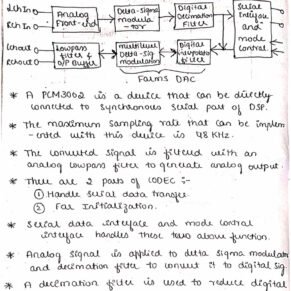 Lch In
Rch In
Analog
Front-end
Delta-Sigma
modula
-tor
Digital
Decimation
Filter
Serial
Interface
and
mode
control
Lchout
Rchout
Lowpass
filter &
O/P Buffer
multilevel
Delta-sigma
modulators
Digital
Interpolation
filter
Forms DAC
* A PCM3002 is a device that can be directly
connected to synchronous serial part of DSP.
* The maximum sampling rate that can be implem
-ented with this device is 48 KHz.
* The converted signal is filtered with an
analog lowpass filter to generate analog output.
* There are 2 parts of CODEC :-
① Handle serial data transfer
② For Initialization.
* Serial data interface and mode control
interface handles these two above function.
* Analog signal is applied to delta sigma modulator
and decimation filter to convert it to digital sig.
* A decimation filter is used to reduce digital